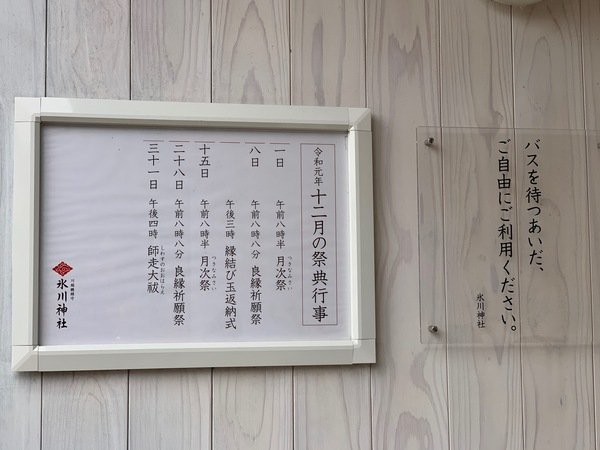 バスを待つあいだ、
ご自由にご利用ください。
氷川神社
令和元年 十二月の祭典行事
一日 午前八時半 月次祭
つきなみさい
八日 午前八時八分 良縁祈願祭
午後三時 縁結び玉返納式
十五日 午前八時半 月次祭
つきなみさい
二十八日 午前八時八分 良縁祈願祭
三十一日 午後四時 師走大祓
しわすのおおはらえ
川越總鎮守
氷川神社